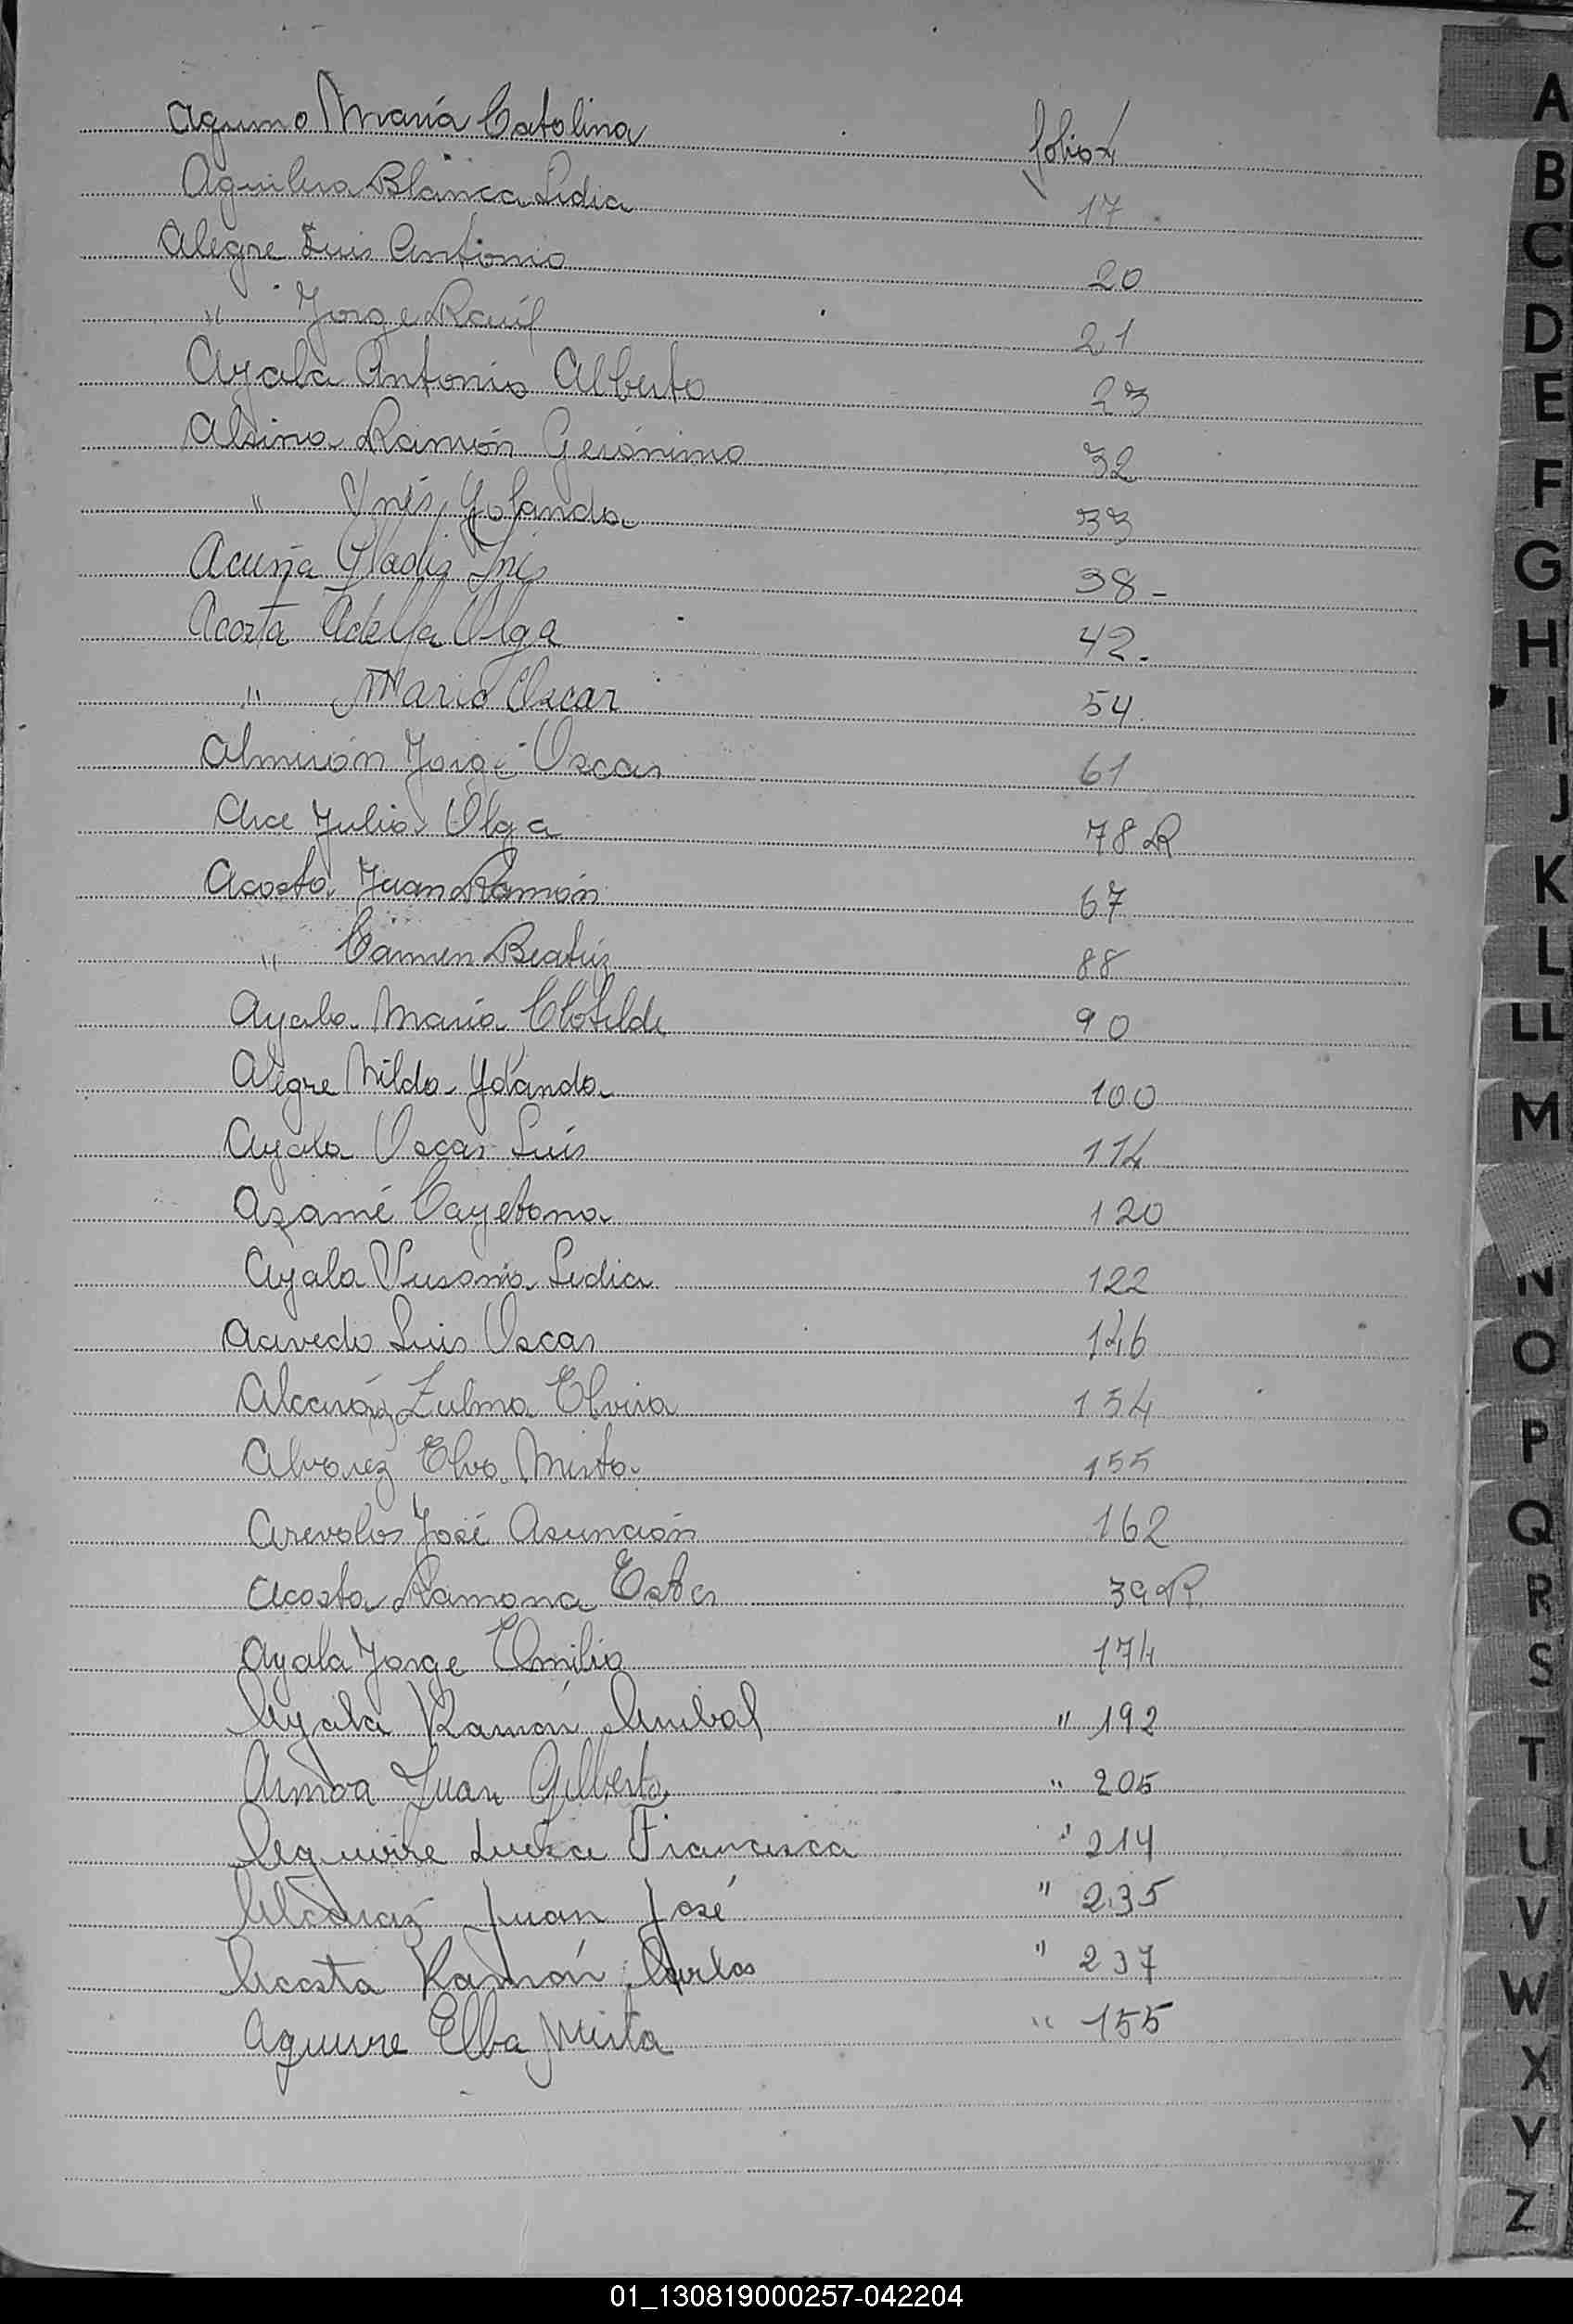 Aquino María Catolina folio 1
Aguilera Blanca Lidia 17
Alegre Luis Antonio 20
" Jorge Raúl 21
Ayala Antonio Alberto 23
Alsina Ramón Gerónimo 32
" Ynés Yolanda 33
Acuña Gladis Inés 38-
Acosta Adella Olga 42.
" Mario Oscar 54
Almirón Jorge Oscar 61
Arce Julia Olga 78 R
Acosta Juan Ramón 67
" Carmen Beatriz 88
Ayala María Clotilde 90
Alegre Nilda Yolanda 100
Ayala Oscar Luis 114
Azamé Cayetana 120
Ayala Susana Lidia 122
Acevedo Luis Oscar 146
Alcaráz Zulma Elvira 154
Alvarez Elva Mirta 155
Arevalos José Asunción 162
Acosta Ramona Ester 39 R
Ayala Jorge Emilio 174
Ayala Ramón Anibal " 192
Armoa Juan Gilberto " 205
Aguirre Luisa Francisca " 214
Alcaraz Juan José " 235
Acosta Ramón Carlos " 237
Aguirre Elba Mirta " 155
A
B
C
D
E
F
G
H
I
J
K
L
LL
M
N
O
P
Q
R
S
T
U
V
W
X
Y
Z
01_130819000257-042204